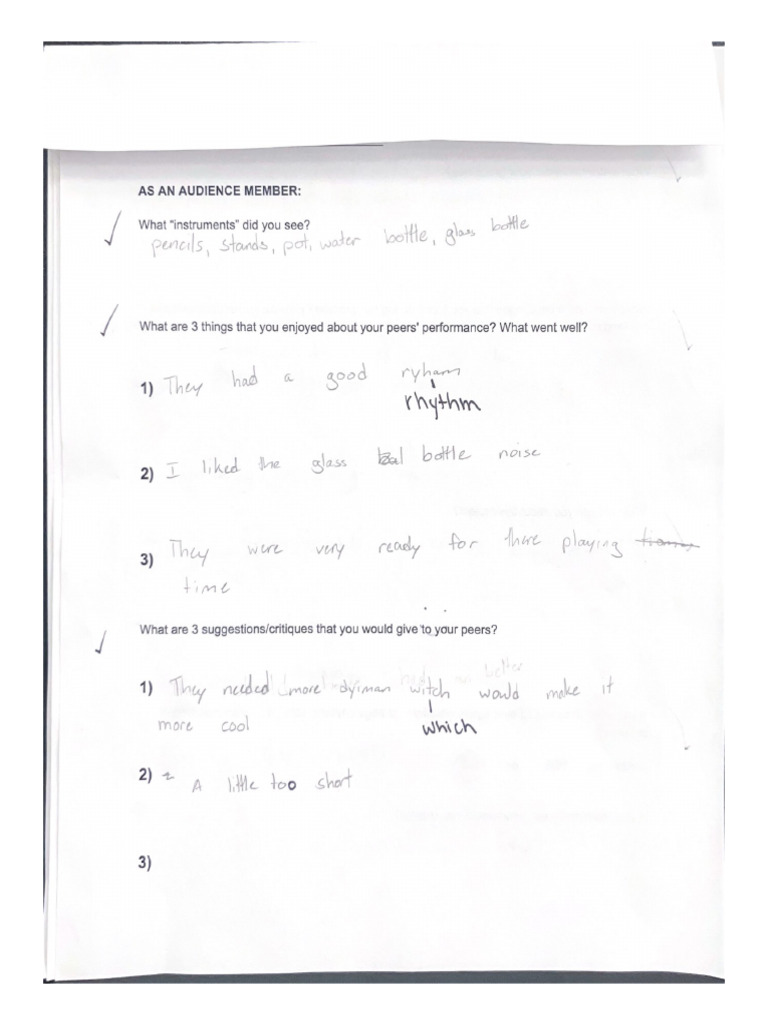 AS AN AUDIENCE MEMBER:
What "instruments" did you see?
pencils, stands, pot, water bottle, glass bottle
What are 3 things that you enjoyed about your peers' performance? What went well?
1) They had a good ryham
rhythm
2) I liked the glass bottle noise
3) They were very ready for there playing
time
What are 3 suggestions/critiques that you would give to your peers?
better
1) They needed more dyiman witch would make it
more cool
which
2) A little too short
3)